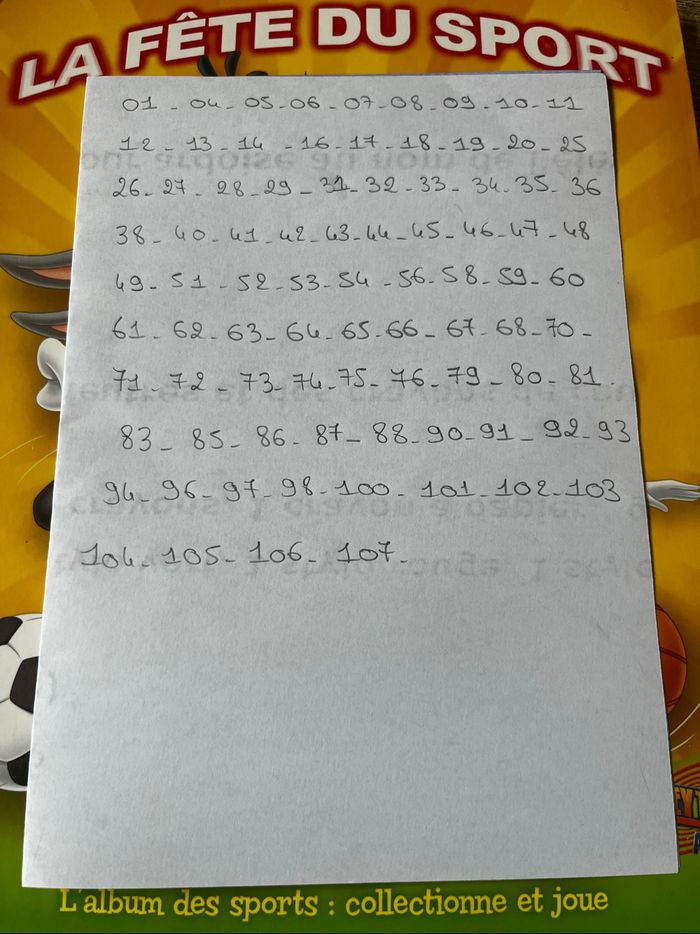 LA FÊTE DU SPORT
01 - 04 - 05 - 06 - 07 - 08 - 09 - 10 - 11
12 - 13 - 14 - 16 - 17 - 18 - 19 - 20 - 25
26 - 27 - 28 - 29 - 31 - 32 - 33 - 34 - 35 - 36
38 - 40 - 41 - 42 - 43 - 44 - 45 - 46 - 47 - 48
49 - 51 - 52 - 53 - 54 - 56 - 58 - 59 - 60
61 - 62 - 63 - 64 - 65 - 66 - 67 - 68 - 70 -
71 - 72 - 73 - 74 - 75 - 76 - 79 - 80 - 81 .
83 - 85 - 86 - 87 - 88 - 90 - 91 - 92 - 93
94 - 96 - 97 - 98 - 100 - 101 - 102 - 103
104 - 105 - 106 - 107 -
L'album des sports : collectionne et joue